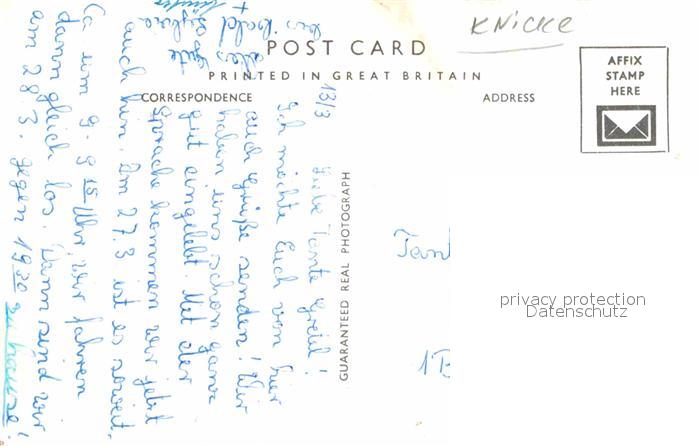 KNicke
POST CARD
PRINTED IN GREAT BRITAIN
CORRESPONDENCE
ADDRESS
AFFIX
STAMP
HERE
GUARANTEED REAL PHOTOGRAPH
13/3
Liebe Tante Gretl!
Ich möchte Euch von hier
auch Grüße senden! Wir
haben uns schon ganz
gut eingelebt. Mit der
Sprache kommen wir jetzt
auch hin. Am 27.3 ist es soweit.
Ca um 9-9 15 Uhr, wir fahren
dann gleich los. Dann sind wir
am 28.3. gegen 19 30 zu hause!
Bis bald
Tan
privacy protection
Datenschutz